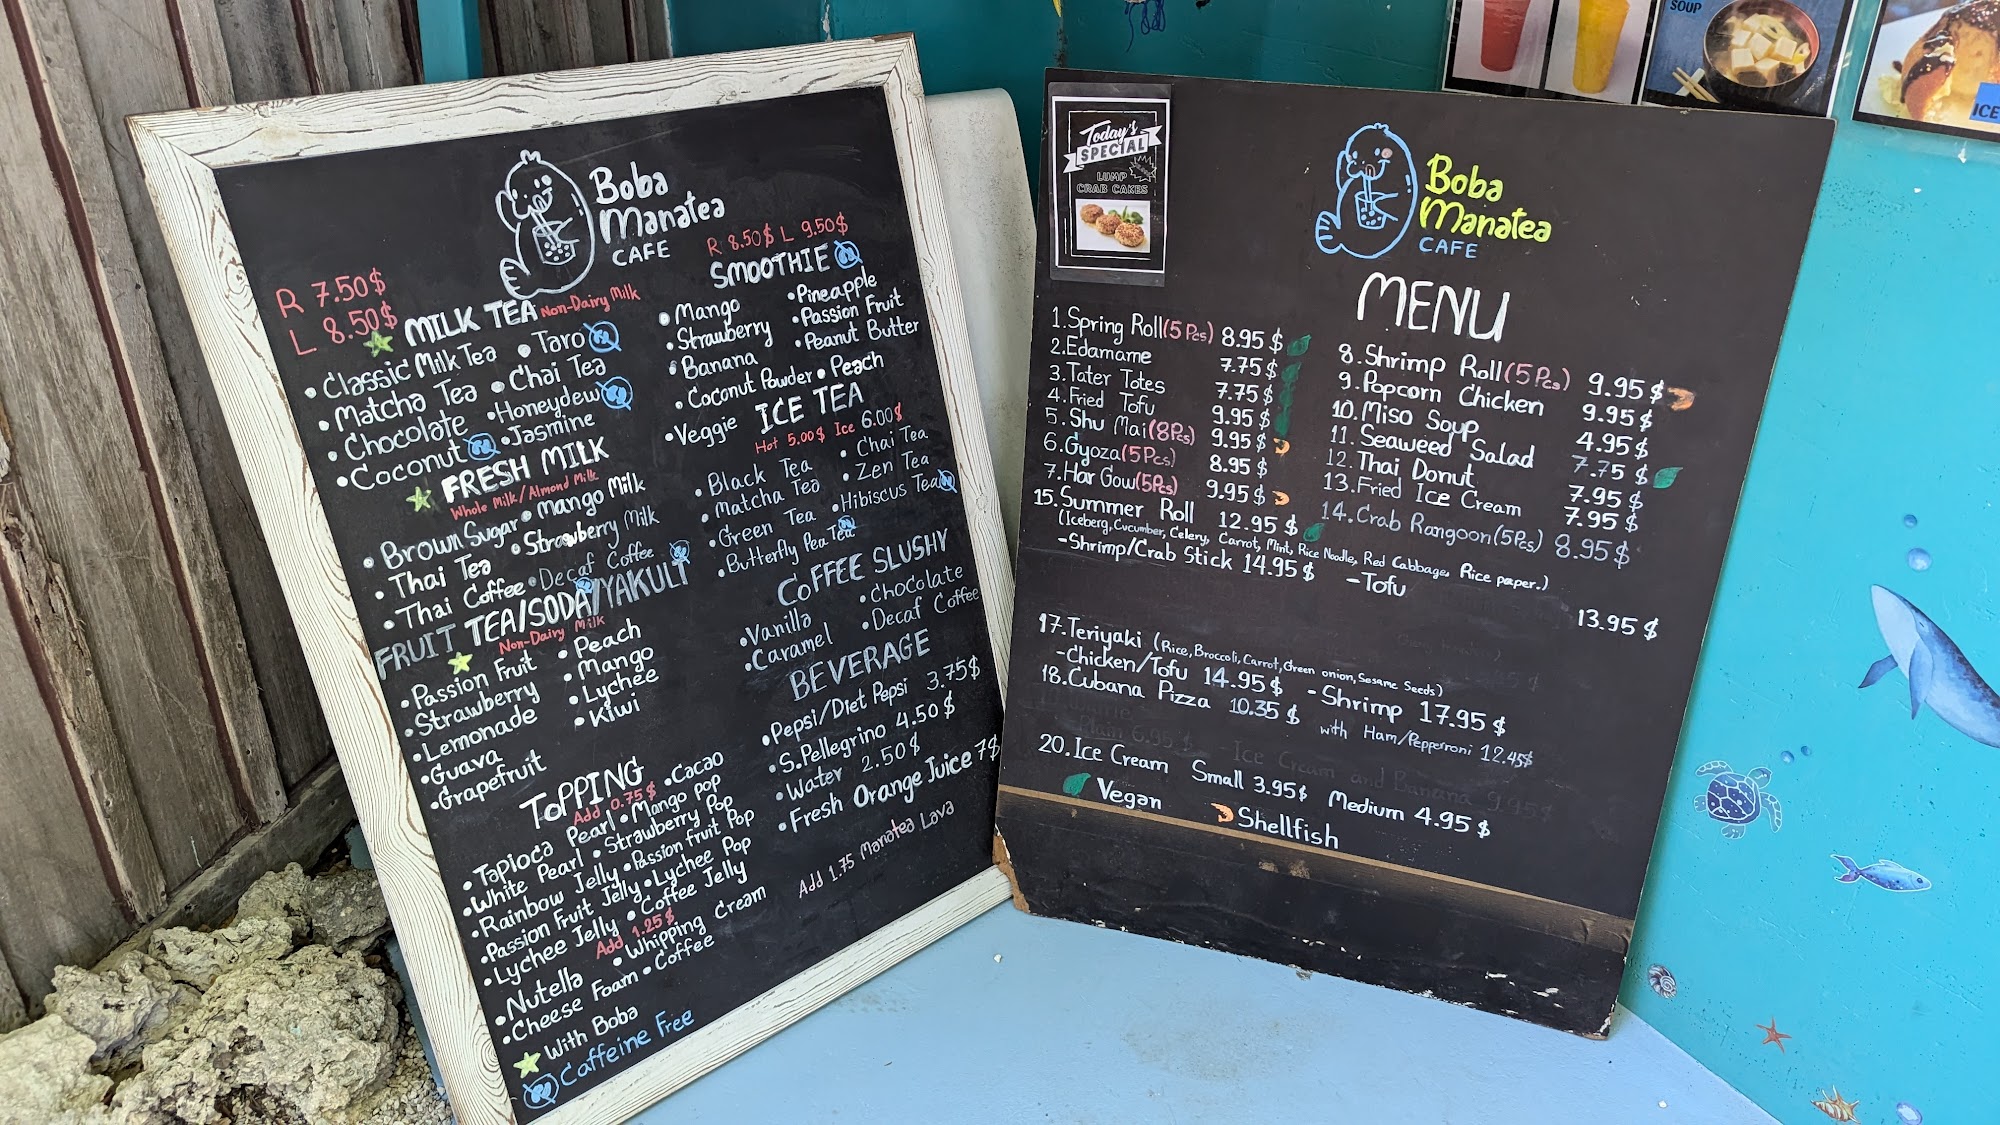 Boba
Manatea
CAFE
R 7.50$
L 8.50$
MILK TEA Non-Dairy Milk
• Classic Milk Tea • Taro
• Matcha Tea • Chai Tea
• Chocolate • Honeydew
• Coconut • Jasmine
FRESH MILK
Whole Milk/Almond Milk
• Brown Sugar • Mango Milk
• Thai Tea • Strawberry Milk
• Thai Coffee • Decaf Coffee
FRUIT TEA/SODA/YAKULT
Non-Dairy Milk
• Passion Fruit • Peach
• Strawberry • Mango
• Lemonade • Lychee
• Guava • Kiwi
• Grapefruit
TOPPING
Add 0.75$
• Tapioca Pearl • Mango pop • Cacao
• White Pearl • Strawberry Pop
• Rainbow Jelly • Passion fruit Pop
• Passion Fruit Jelly • Lychee Pop
• Lychee Jelly • Coffee Jelly
Add 1.25$
• Nutella • Whipping Cream
• Cheese Foam • Coffee
With Boba
Caffeine Free
R 8.50$ L 9.50$
SMOOTHIE
• Mango • Pineapple
• Strawberry • Passion Fruit
• Banana • Peanut Butter
• Coconut Powder • Peach
• Veggie
ICE TEA
Hot 5.00$ Ice 6.00$
• Black Tea • Chai Tea
• Matcha Tea • Zen Tea
• Green Tea • Hibiscus Tea
• Butterfly Pea Tea
COFFEE SLUSHY
• Vanilla • Chocolate
• Caramel • Decaf Coffee
BEVERAGE
• Pepsi/Diet Pepsi 3.75$
• S.Pellegrino 4.50$
• Water 2.50$
• Fresh Orange Juice 7$
Add 1.75 Manatea Lava
Today's
SPECIAL
LUMP
CRAB CAKES
Boba
Manatea
CAFE
MENU
1.Spring Roll(5 Pcs) 8.95$
2.Edamame 7.75$
3.Tater Totes 7.75$
4.Fried Tofu 9.95$
5.Shu Mai(8Pcs) 9.95$
6.Gyoza(5Pcs) 8.95$
7.Har Gow(5Pcs) 9.95$
15.Summer Roll 12.95$
(Iceberg, Cucumber, Celery, Carrot, Mint, Rice Noodle, Red Cabbage, Rice paper.)
-Shrimp/Crab Stick 14.95$ -Tofu 13.95$
8.Shrimp Roll(5Pcs) 9.95$
9.Popcorn Chicken 9.95$
10.Miso Soup 4.95$
11.Seaweed Salad 7.75$
12.Thai Donut 7.95$
13.Fried Ice Cream 7.95$
14.Crab Rangoon(5Pcs) 8.95$
17.Teriyaki (Rice, Broccoli, Carrot, Green onion, Sesame Seeds)
-Chicken/Tofu 14.95$ -Shrimp 17.95$
18.Cubana Pizza 10.35$ with Ham/Pepperroni 12.45$
Plain 6.95$ -Ice Cream and Banana 9.95$
20.Ice Cream Small 3.95$ Medium 4.95$
Vegan Shellfish
SOUP
ICE